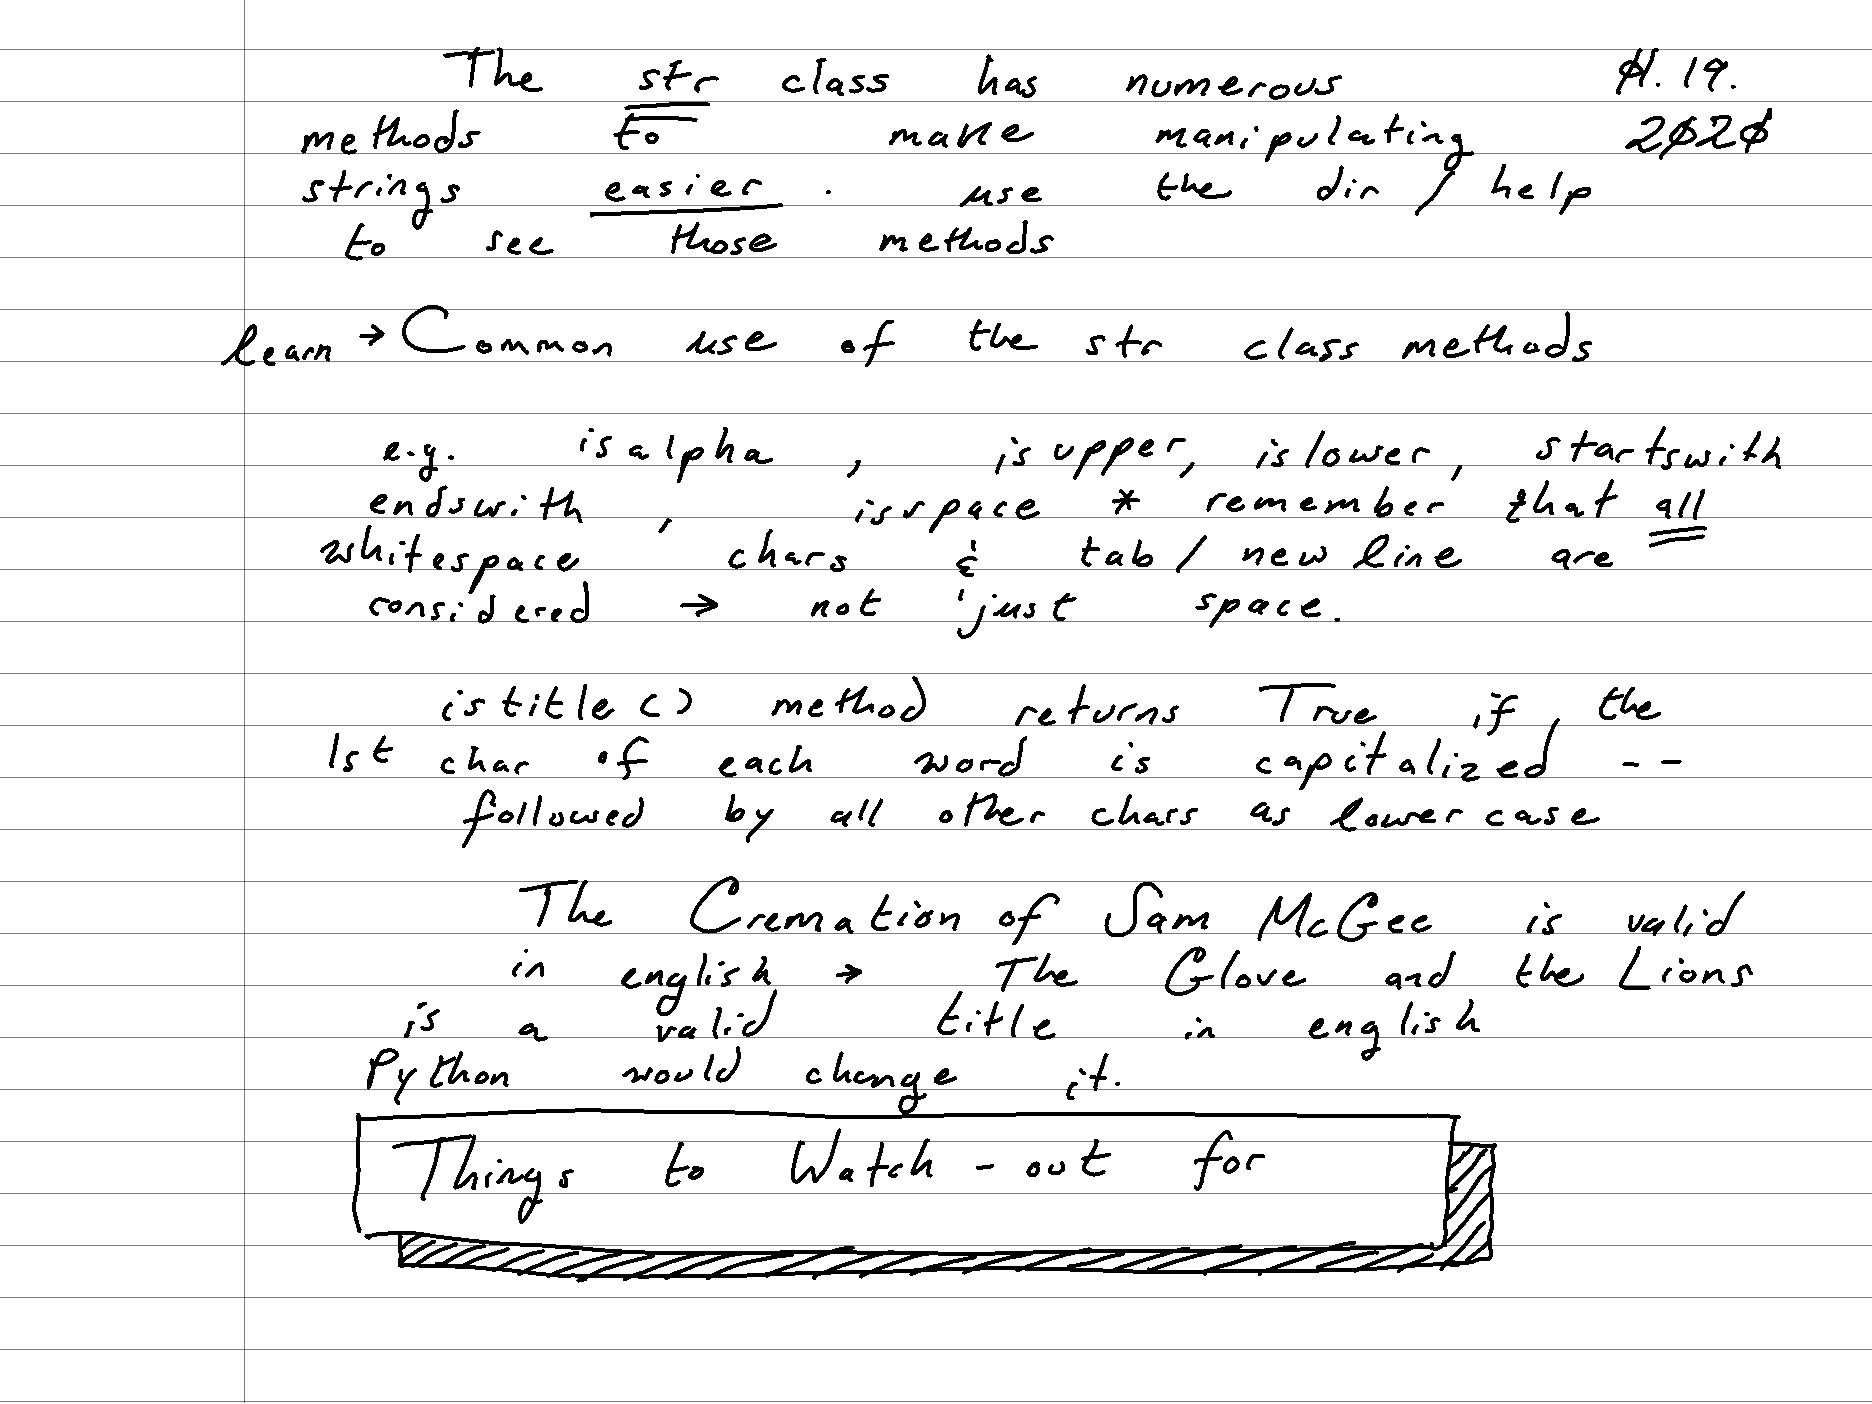 The str class has numerous
methods to make manipulating
strings easier. use the dir / help
to see those methods
19.
2020
learn → Common use of the str class methods
e.g. isalpha, isupper, islower, startswith
endswith, isspace * remember that all
whitespace chars & tab / newline are
considered → not just space.
istitle() method returns True if the
1st char of each word is capitalized --
followed by all other chars as lower case
The Cremation of Sam McGee is valid
in english → The Glove and the Lions
is a valid title in english
Python would change it.
Things to Watch-out for